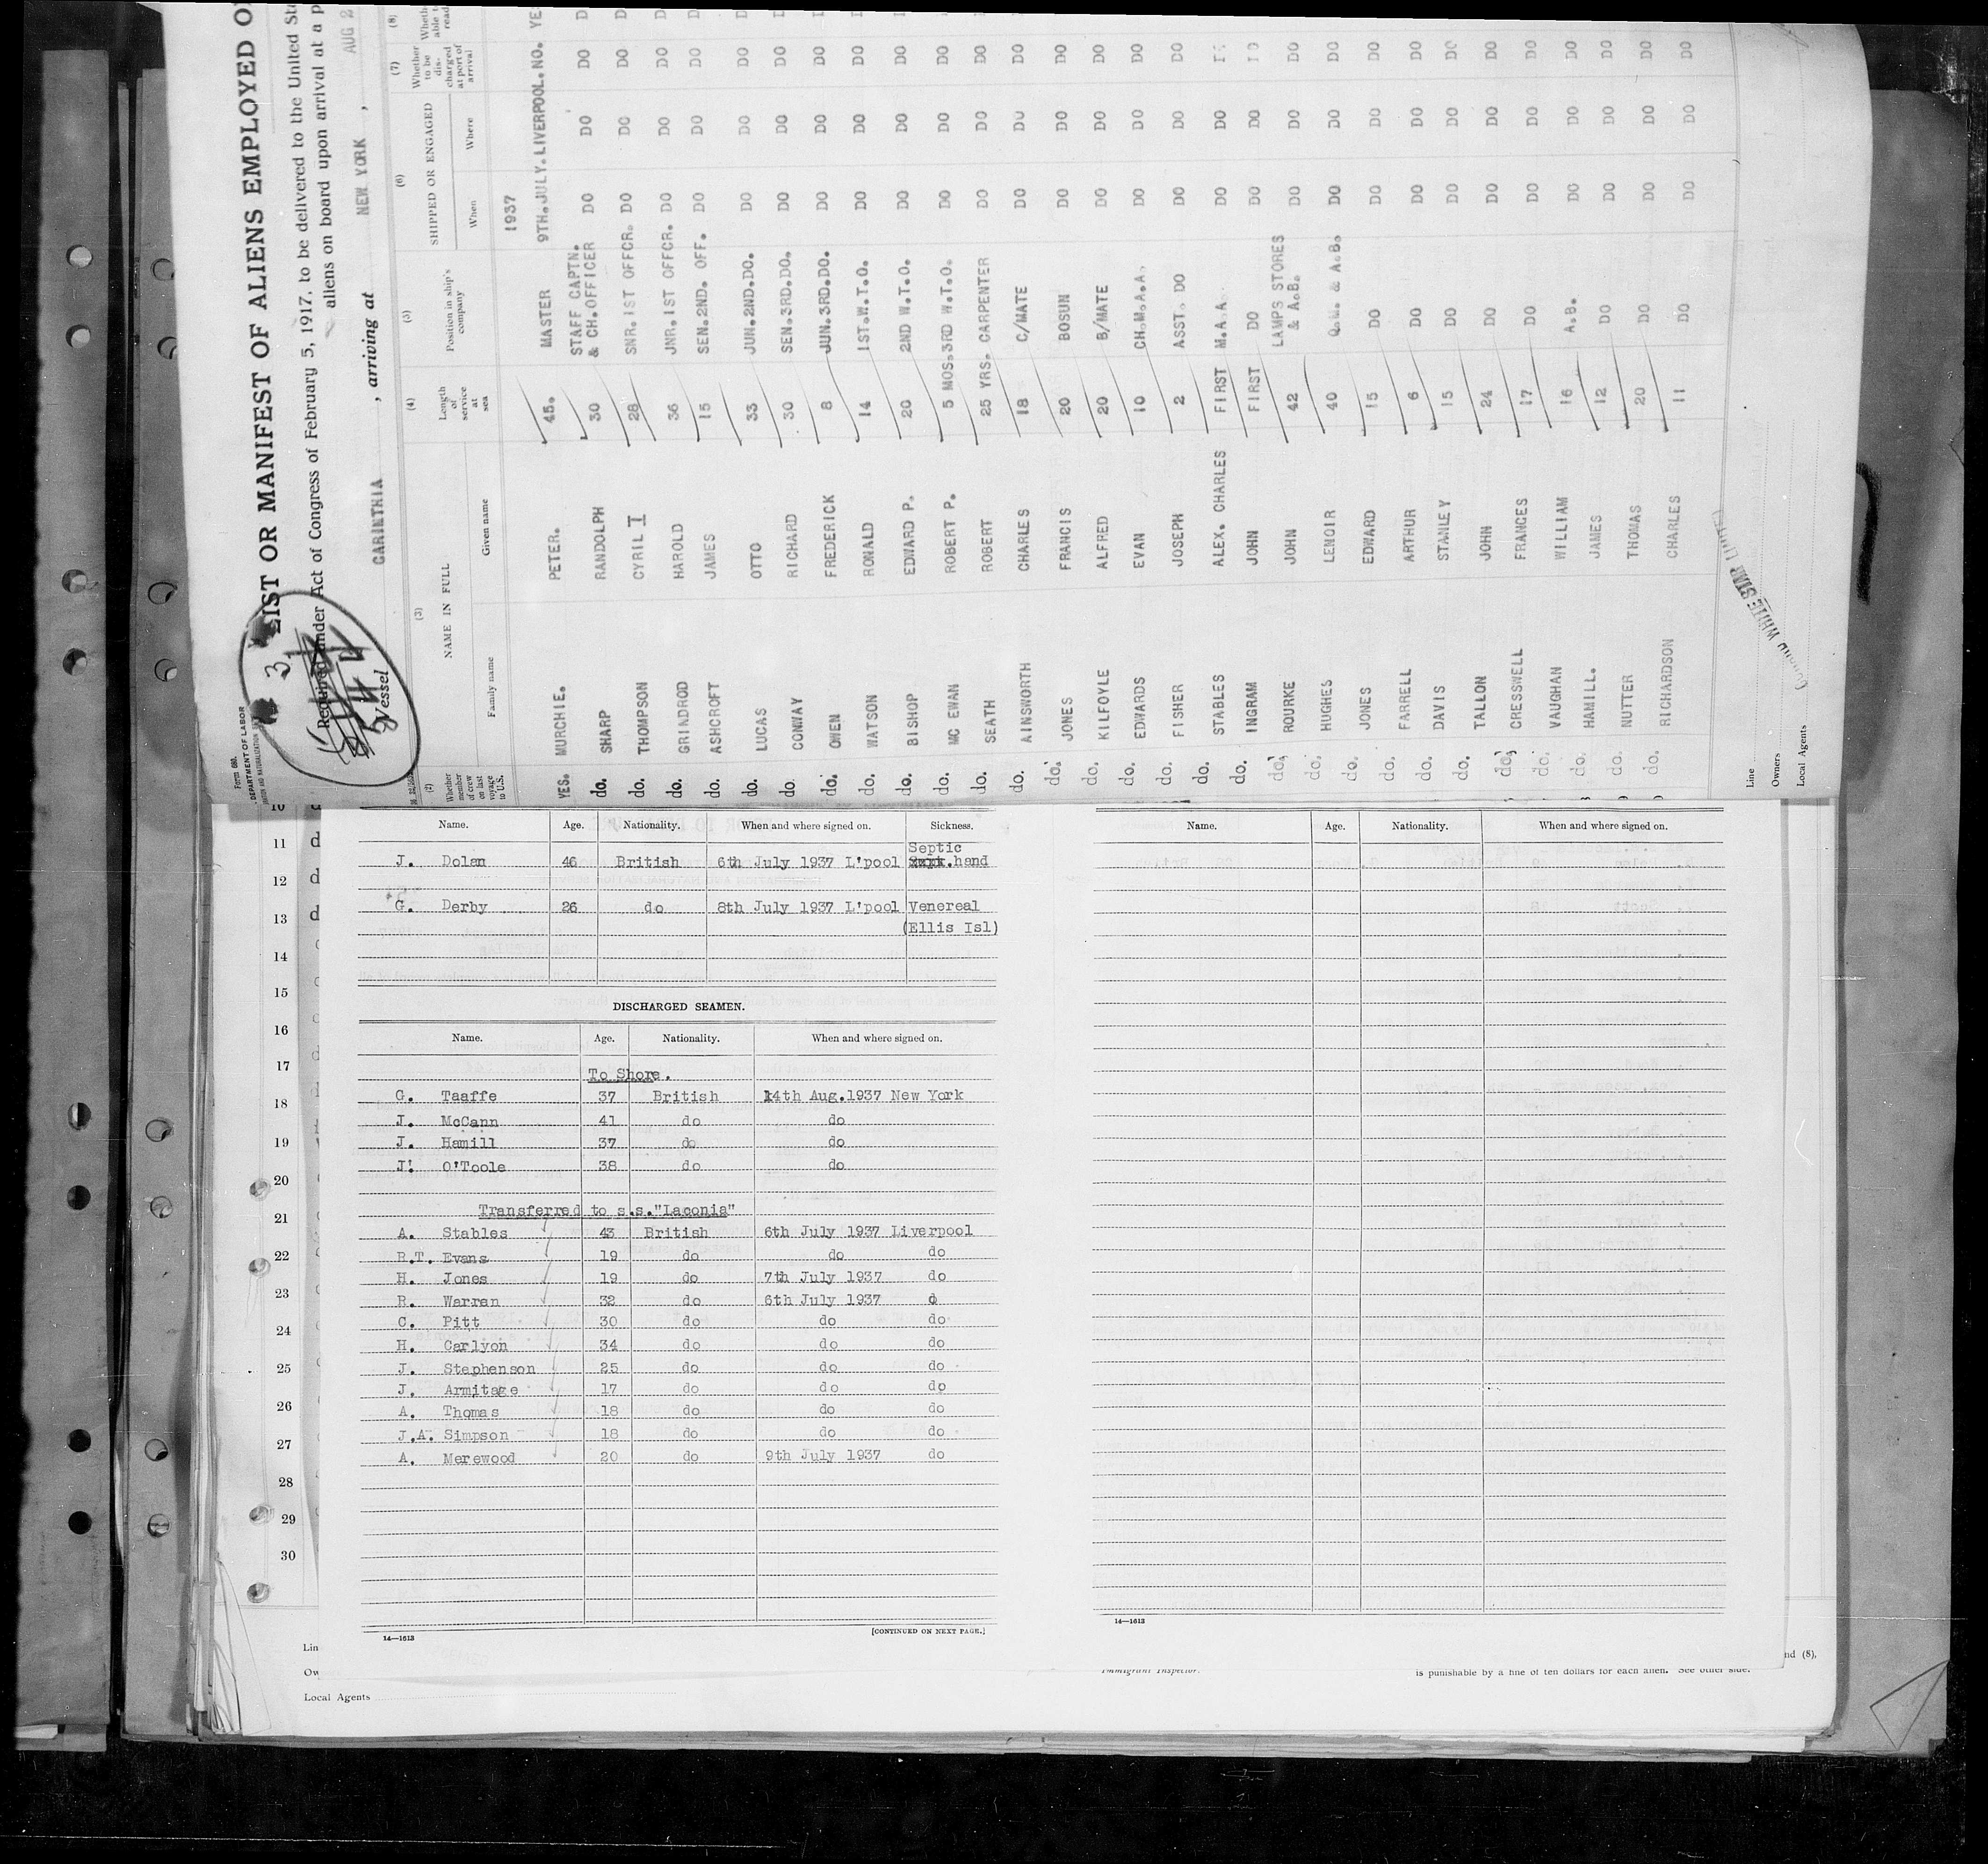 Form 680.
DEPARTMENT OF LABOR
LIST OR MANIFEST OF ALIENS EMPLOYED O
Required under Act of Congress of February 5, 1917, to be delivered to the United St
aliens on board upon arrival at a p
Vessel CARINTHIA , arriving at NEW YORK , AUG 2
(2) (3) (4) (5) (6) (7) (8)
Whether member of crew on last voyage to U.S. NAME IN FULL Family name Given name Length of service at sea Position in ship's company SHIPPED OR ENGAGED When Where Whether to be discharged at port of arrival
1937
YES. MURCHIE. PETER. 45. MASTER 9TH.JULY. LIVERPOOL. NO. YE
do. SHARP RANDOLPH 30 STAFF CAPTN. & CH.OFFICER DO DO DO D
do. THOMPSON CYRIL I 28 SNR.1ST OFFCR. DO DO DO D
do. GRIADROD HAROLD 36 JNR.1ST OFFCR. DO DO DO D
do. ASHCROFT JAMES 15 SEN.2ND. OFF. DO DO DO D
do. LUCAS OTTO 33 JUN.2ND.DO. DO DO DO D
do. CONWAY RICHARD 30 SEN.3RD.DO. DO DO DO
do. OWEN FREDERICK 8 JUN.3RD.DO. DO DO DO
do. WATSON RONALD 14 1ST.W.T.O. DO DO DO
do. BISHOP EDWARD P. 20 2ND W.T.O. DO DO DO
do. MC EWAN ROBERT P. 5 MOS. 3RD W.T.O. DO DO DO
do. SEATH ROBERT 25 YRS. CARPENTER DO DO DO
do. AINSWORTH CHARLES 18 C/MATE DO DO DO
do. JONES FRANCIS 20 BOSUN DO DO DO
do. KILFOYLE ALFRED 20 B/MATE DO DO DO
do. EDWARDS EVAN 10 CH.M.A.A. DO DO DO
do. FISHER JOSEPH 2 ASST. DO DO DO DO
do. STABLES ALEX. CHARLES FIRST M.A.A. DO DO
do. INGRAM JOHN FIRST DO DO DO
do. ROURKE JOHN 42 LAMPS STORES & A.B. DO DO DO
do. HUGHES LENOIR 40 Q.M. & A.B. DO DO DO
do. JONES EDWARD 15 DO DO DO DO
do. FARRELL ARTHUR 6 DO DO DO DO
do. DAVIS STANLEY 15 DO DO DO DO
do. TALLON JOHN 24 DO DO DO DO
do. CRESSWELL FRANCES 17 DO DO DO DO
do. VAUGHAN WILLIAM 16 A.B. DO DO DO
do. HAMILL. JAMES 12 DO DO DO DO
do. NUTTER THOMAS 20 DO DO DO DO
do. RICHARDSON CHARLES 11 DO DO DO DO
Line
Owners WHITE STAR LIMITED
Local Agents
10
11
12
13
14
15
16
17
18
19
20
21
22
23
24
25
26
27
28
29
30
Name. Age. Nationality. When and where signed on. Sickness.
J. Dolan 46 British 6th July 1937 L'pool Septic hand
G. Derby 26 do 8th July 1937 L'pool Venereal
(Ellis Isl)
DISCHARGED SEAMEN.
Name. Age. Nationality. When and where signed on.
To Shore.
G. Taaffe 37 British 14th Aug.1937 New York
J. McCann 41 do do
J. Hamill 37 do do
J. O'Toole 38 do do
Transferred to s.s."Laconia"
A. Stables 43 British 6th July 1937 Liverpool
R.T. Evans 19 do do do
H. Jones 19 do 7th July 1937 do
R. Warran 32 do 6th July 1937 d
C. Pitt 30 do do do
H. Carlyon 34 do do do
J. Stephenson 25 do do do
J. Armitage 17 do do do
A. Thomas 18 do do do
J.A. Simpson 18 do do do
A. Merewood 20 do 9th July 1937 do
14—1613 [CONTINUED ON NEXT PAGE.]
Name. Age. Nationality. When and where signed on.
14—1613
Lin
Ow
Local Agents
Immigrant Inspector.
nd (8),
is punishable by a fine of ten dollars for each alien. See other side.